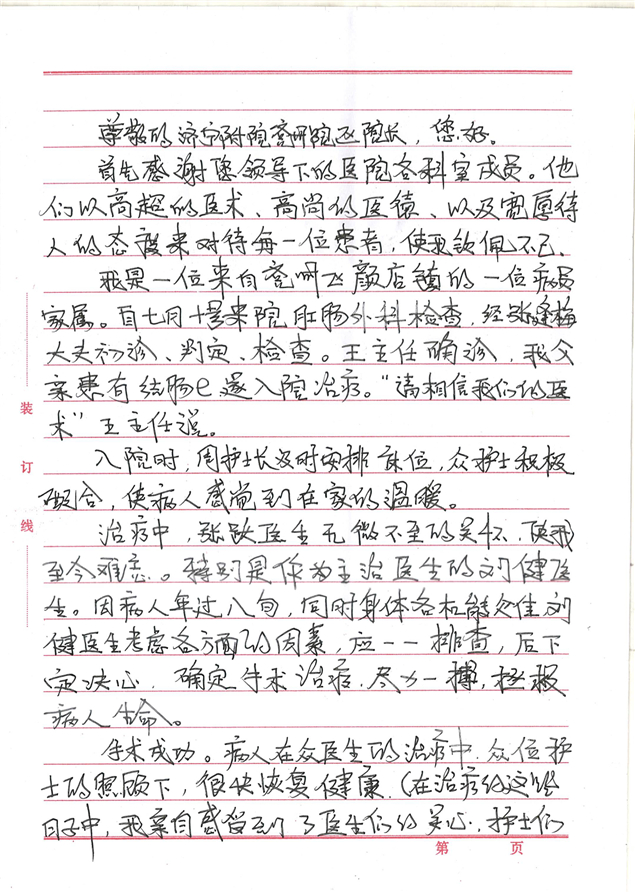 尊敬的济宁附院兖州院区院长，您好。
首先感谢您领导下的医院各科室成员。他
们以高超的医术、高尚的医德、以及宽厚待
人的态度来对待每一位患者，使我钦佩不已.
我是一位来自兖州区颜店镇的一位病员
家属。自七月十号来院肛肠外科检查，经张
大夫初诊、判定、检查。王主任确诊，我父
亲患有结肠e.遂入院治疗。“请相信我们的医
术”王主任说。
入院时，周护士长及时安排床位，众护士积极
配合，使病人感觉到在家的温暖。
治疗中，张跃医生无微不至的关怀，使我
至今难忘。特别是作为主治医生的刘健医
生。因病人年过八旬，同时身体各机能欠佳刘
健医生考虑各方面的因素，应一一排查，后下
定决心，确定手术治疗，尽力一搏，拯救
病人生命。
手术成功。病人在众医生的治疗中，众位护
士的照顾下，很快恢复健康.（在治疗的这些
日子中，我亲自感受到了医生们的关心，护士们
第 页
装
订
线